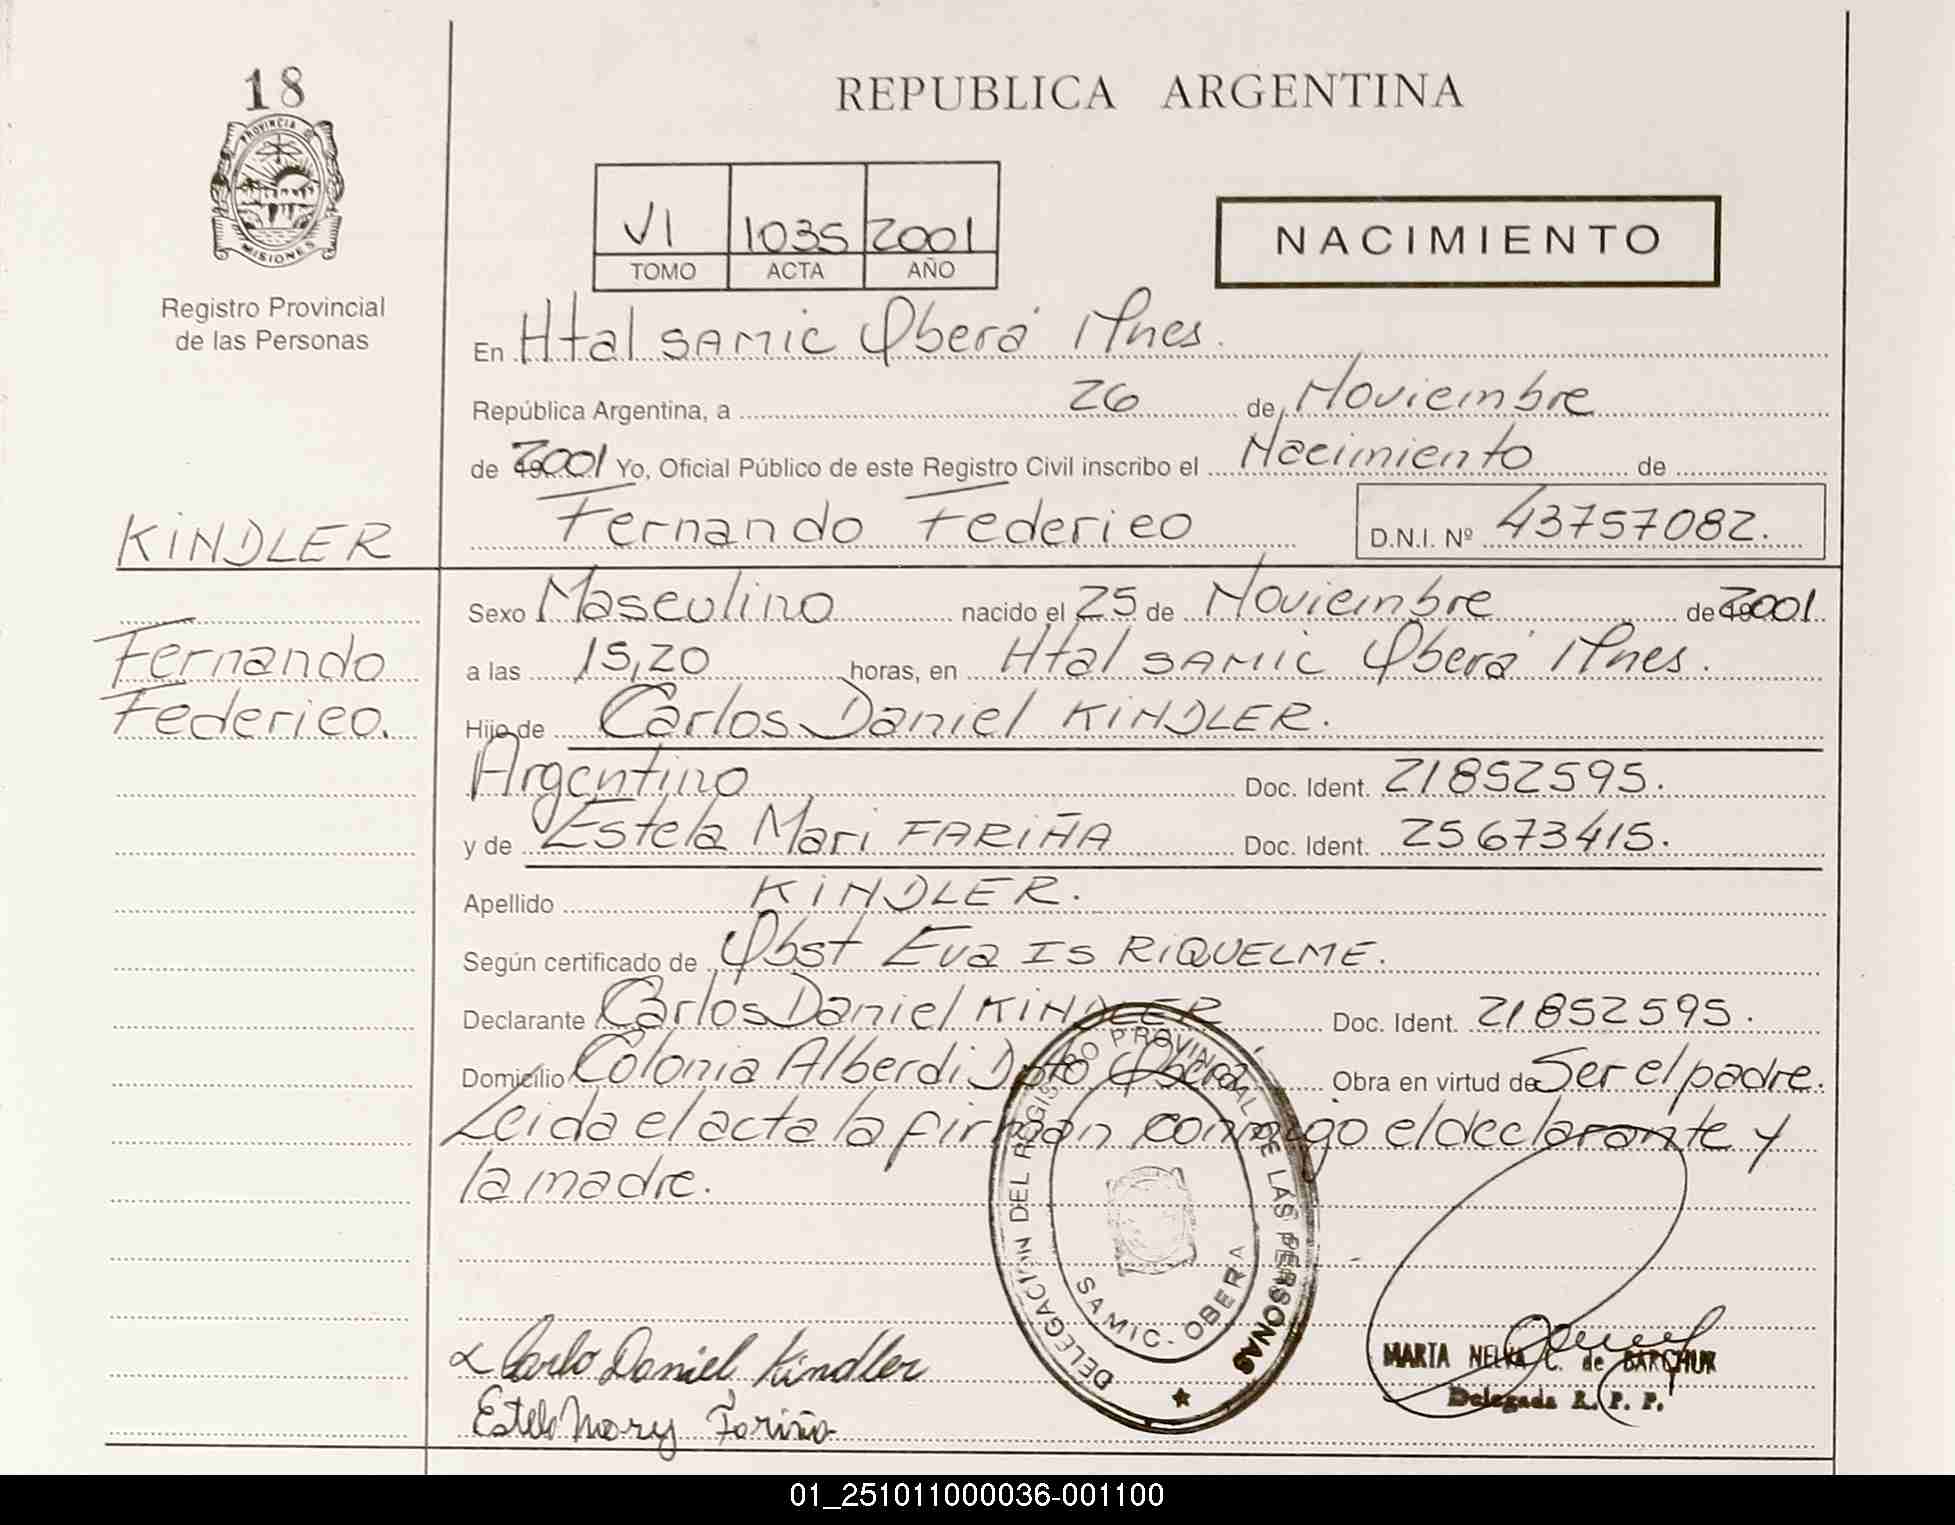 18
PROVINCIA D
MISIONES
Registro Provincial
de las Personas
REPUBLICA ARGENTINA
VI 1035 2001
TOMO ACTA AÑO
NACIMIENTO
En Htal SAMIC Oberá Mnes.
República Argentina, a 26 de Noviembre
de 2001 Yo, Oficial Público de este Registro Civil inscribo el Nacimiento de
Fernando Federico D.N.I. Nº 43757082.
KINDLER
Fernando
Federico.
Sexo Masculino nacido el 25 de Noviembre de 2001
a las 15,20 horas, en Htal SAMIC Oberá Mnes.
Hijo de Carlos Daniel KINDLER.
Argentino Doc. Ident. 21852595.
y de Estela Mari FARIÑA Doc. Ident. 25673415.
Apellido KINDLER.
Según certificado de Obst Eva IS RIQUELME.
Declarante Carlos Daniel KINDLER Doc. Ident. 21852595.
Domicilio Colonia Alberdi Dpto Oberá Obra en virtud de Ser el padre.
Leida el acta la firman conmigo el declarante y
la madre.
DELEGACION DEL REGISTRO PROVINCIAL DE LAS PERSONAS
SAMIC. OBERA
Carlo Daniel Kindler
Estela Mary Fariña
MARTA NELVA C. de BARCHUK
Delegada R. P. P.
01_251011000036-001100